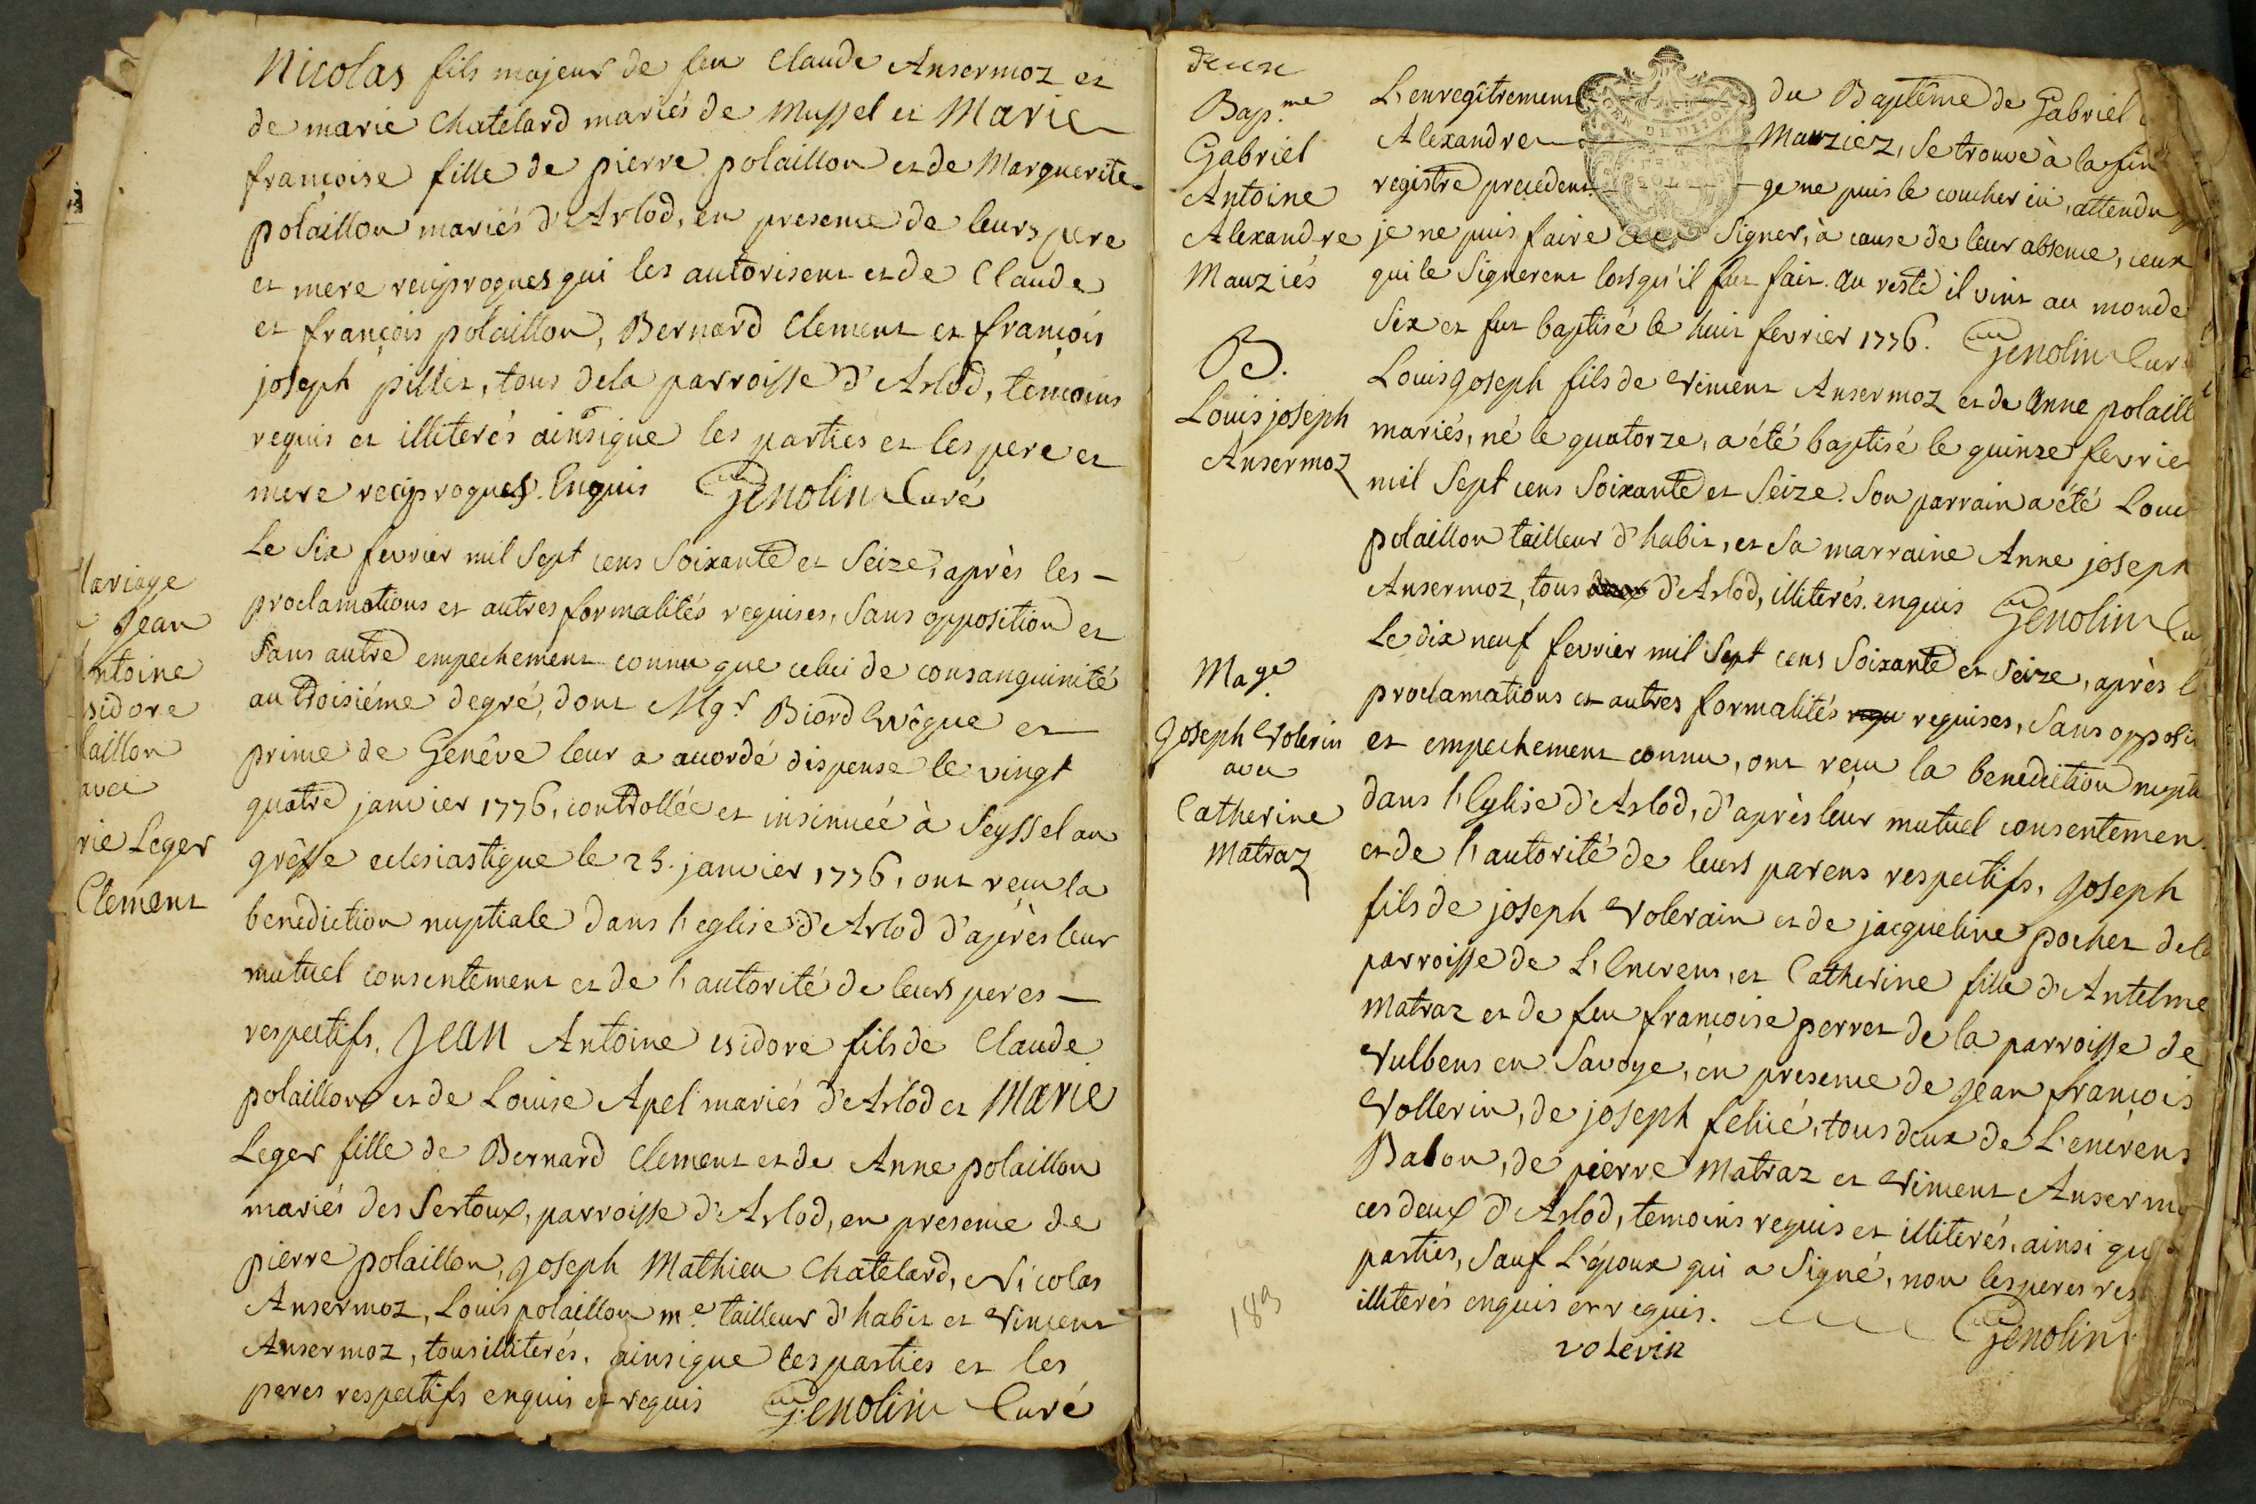 Nicolas fils majeur de feu Claude Ansermoz et
de marie Chatelard mariés de Mussel et Marie
françoise fille de pierre polaillon et de Marguerite
polaillon mariés d'Arlod, en presence de leurs pere
et mere reciproques qui les autorisent et de Claude
et françois polaillon, Bernard Clement et françois
joseph pillet, tous dela parroisse d'Arlod, temoins
requis et illiterés ainsique les parties et les pere et
mere reciproques. Enquis Genolin Curé
lariage
Jean
Antoine
sidore
laillon
avec
rie Leger
Clement
Le Six fevrier mil Sept cens Soixante et Seize, après les -
proclamations et autres formalités requises, Sans opposition et
Sans autre empechement connu que celui de consanguinité
au troisiéme degré, dont Mgr Biord Evêque et
prince de Genêve leur a accordé dispense le vingt
quatre janvier 1776, controllée et insinuéé à Seyssel au
grêffe eclesiastique le 25. janvier 1776, ont reçu la
benediction nuptiale dans l'eglise d'Arlod d'après leur
mutuel consentement et de l'autorité de leurs peres -
respectifs. Jean Antoine isidore fils de Claude
polaillon et de Louise Apel mariés d'Arlod et Marie
Leger fille de Bernard Clement et de Anne polaillon
mariés des Sertoux, parroisse d'Arlod, en presence de
pierre polaillon, joseph Mathieu Chatelard, Nicolas
Ansermoz, Louis polaillon me. tailleur d'habit et Vincent
Ansermoz, tous illiterés, ainsique les parties et les
peres respectifs enquis et requis Genolin Curé
deux
Bap.me
Gabriel
Antoine
Alexandre
Mauziés
L'enregîtrement du Baptême de Gabriel
Alexandre Mauziez, Se trouve à la fin
registre precedent ge ne puis le coucher ici, attendu
je ne puis faire Signer, à cause de leur absence, ceux
qui le Signerent lorsqu'il fut fait. Au reste il vint au monde
Six et fut baptisé le huit fevrier 1776. Genolin Cur
B.
Louis joseph
Ansermoz
Louis Joseph fils de Vincent Ansermoz et de Anne polaill
mariés, né le quatorze, a été baptisé le quinze fevrie
mil Sept cens Soixante et Seize. Son parrain a été Loui
polaillon tailleur d'habit, et Sa marraine Anne joseph
Ansermoz, tous d'Arlod, illiterés. enquis Genolin Cu
Mage.
Joseph Volerin
avec
Catherine
Matraz
Le dix neuf fevrier mil Sept cens Soixante et Seize, après l
proclamations et autres formalités requ requises, Sans opposi
et empechement connu, ont reçu la benediction nupti
dans l'Eglise d'Arlod, d'après leur mutuel consentemen
et de l'autorité de leurs parens respectifs, Joseph
fils de joseph Volerain et de jacqueline pochet dela
parroisse de L'Encrens, et Catherine fille d'Antelme
Matraz et de feu françoise perret de la parroisse de
Vulbens en Savoye, en presence de Jean françois
Vollerin, de joseph felicé, tous deux de L'encrens
Balon, de pierre Matraz et Vincent Anserm
ces deux d'Arlod, temoins requis et illiterés, ainsi qu
parties, Sauf L'époux qui a Signé, non les peres res
illiterés enquis et requis. Genolin
volerin
189